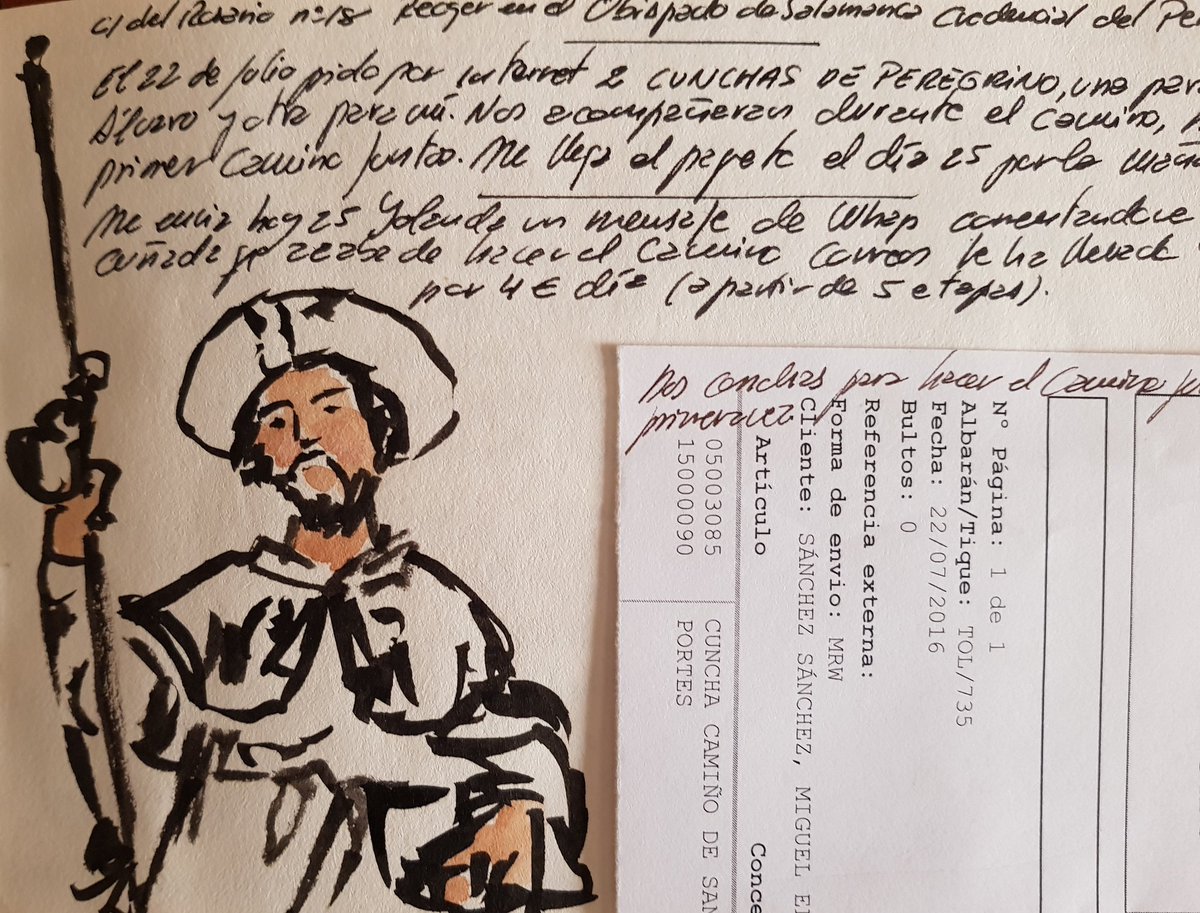 c/ del Rosario nº 18 Recoger en el Obispado de Salamanca Credencial del Pe
El 22 de julio pido por internet 2 CUNCHAS DE PEREGRINO, una par
Álvaro y otra para mí. Nos acompañaran durante el camino,
primer Camino juntos. Me llega el paquete el día 25 por la maña
Me envia hoy 25 Yolanda un mensaje de Whap comentandome
cuñada qe acaba de hacer el Camino Correos le ha llevado
por 4 € día (a partir de 5 etapas).
Dos conchas para hacer el Camino
primera vez
Nº Página: 1 de 1
Albarán/Tique: TOL/735
Fecha: 22/07/2016
Bultos: 0
Referencia externa:
Forma de envio: MRW
Cliente: SÁNCHEZ SÁNCHEZ, MIGUEL
Artículo Conce
05003085 CUNCHA CAMIÑO DE SAN
15000090 PORTES